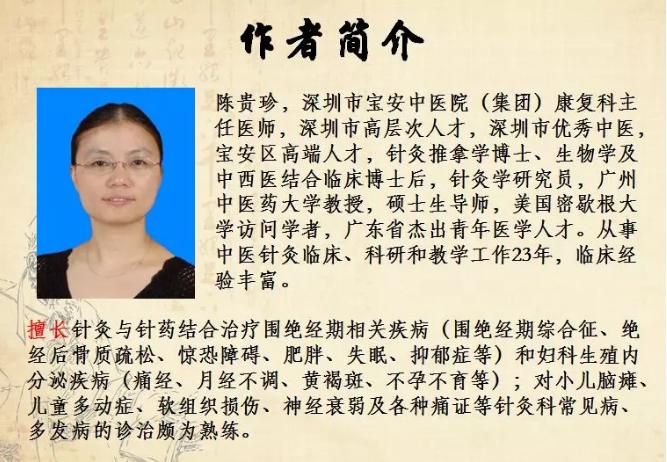 作者简介
陈贵珍，深圳市宝安中医院（集团）康复科主
任医师，深圳市高层次人才，深圳市优秀中医，
宝安区高端人才，针灸推拿学博士、生物学及
中西医结合临床博士后，针灸学研究员，广州
中医药大学教授，硕士生导师，美国密歇根大
学访问学者，广东省杰出青年医学人才。从事
中医针灸临床、科研和教学工作23年，临床经
验丰富。
擅长针灸与针药结合治疗围绝经期相关疾病（围绝经期综合征、绝
经后骨质疏松、惊恐障碍、肥胖、失眠、抑郁症等）和妇科生殖内
分泌疾病（痛经、月经不调、黄褐斑、不孕不育等）；对小儿脑瘫、
儿童多动症、软组织损伤、神经衰弱及各种痛证等针灸科常见病、
多发病的诊治颇为熟练。